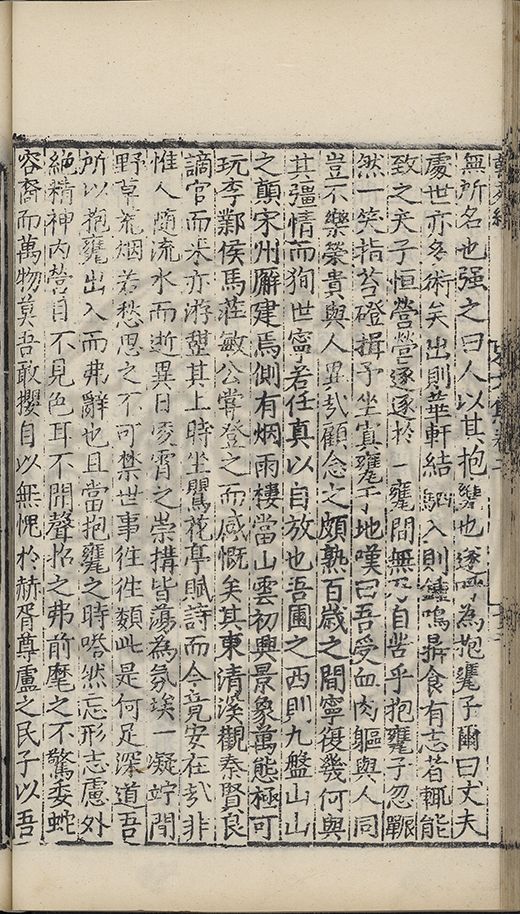 無所名也强之曰人以其抱甕也遂呼為抱甕子爾曰丈夫
處世亦多術矣出則華軒結駟入則鍾鳴鼎食有志者輒能
致之夫子恒營營逐逐於一甕間無乃自苦乎抱甕子忽囅
然一笑指苔磴揖予坐寘甕于地嘆曰吾受血肉軀與人同
豈不欒榮貴與人異㢤顧念之頗熟百歳之間寧復幾何與
其彊情而狥世寧若任真以自放也吾圃之西則九盤山山
之顛宋州廨建焉側有烟雨樓當山雲初興景象萬態極可
玩李鄴侯馬莊敏公嘗登之而感慨矣其東清溪觀秦賢良
謫官而来亦游塟其上時坐鸎花亭賦詩而今竟安在㢤非
惟人随流水而逝異日夌霄之崇搆皆蕩為氛埃一凝竚間
野草荒烟若愁思之不可禁世事徃徃類此是何足深道吾
所以抱甕出入而弗辭也且當抱甕之時嗒然忘形志慮外
絶精神内營目不見色耳不聞聲招之弗前麾之不驚委蛇
容裔而萬物莫吾敢攖自以無愧於赫胥尊盧之民子以吾